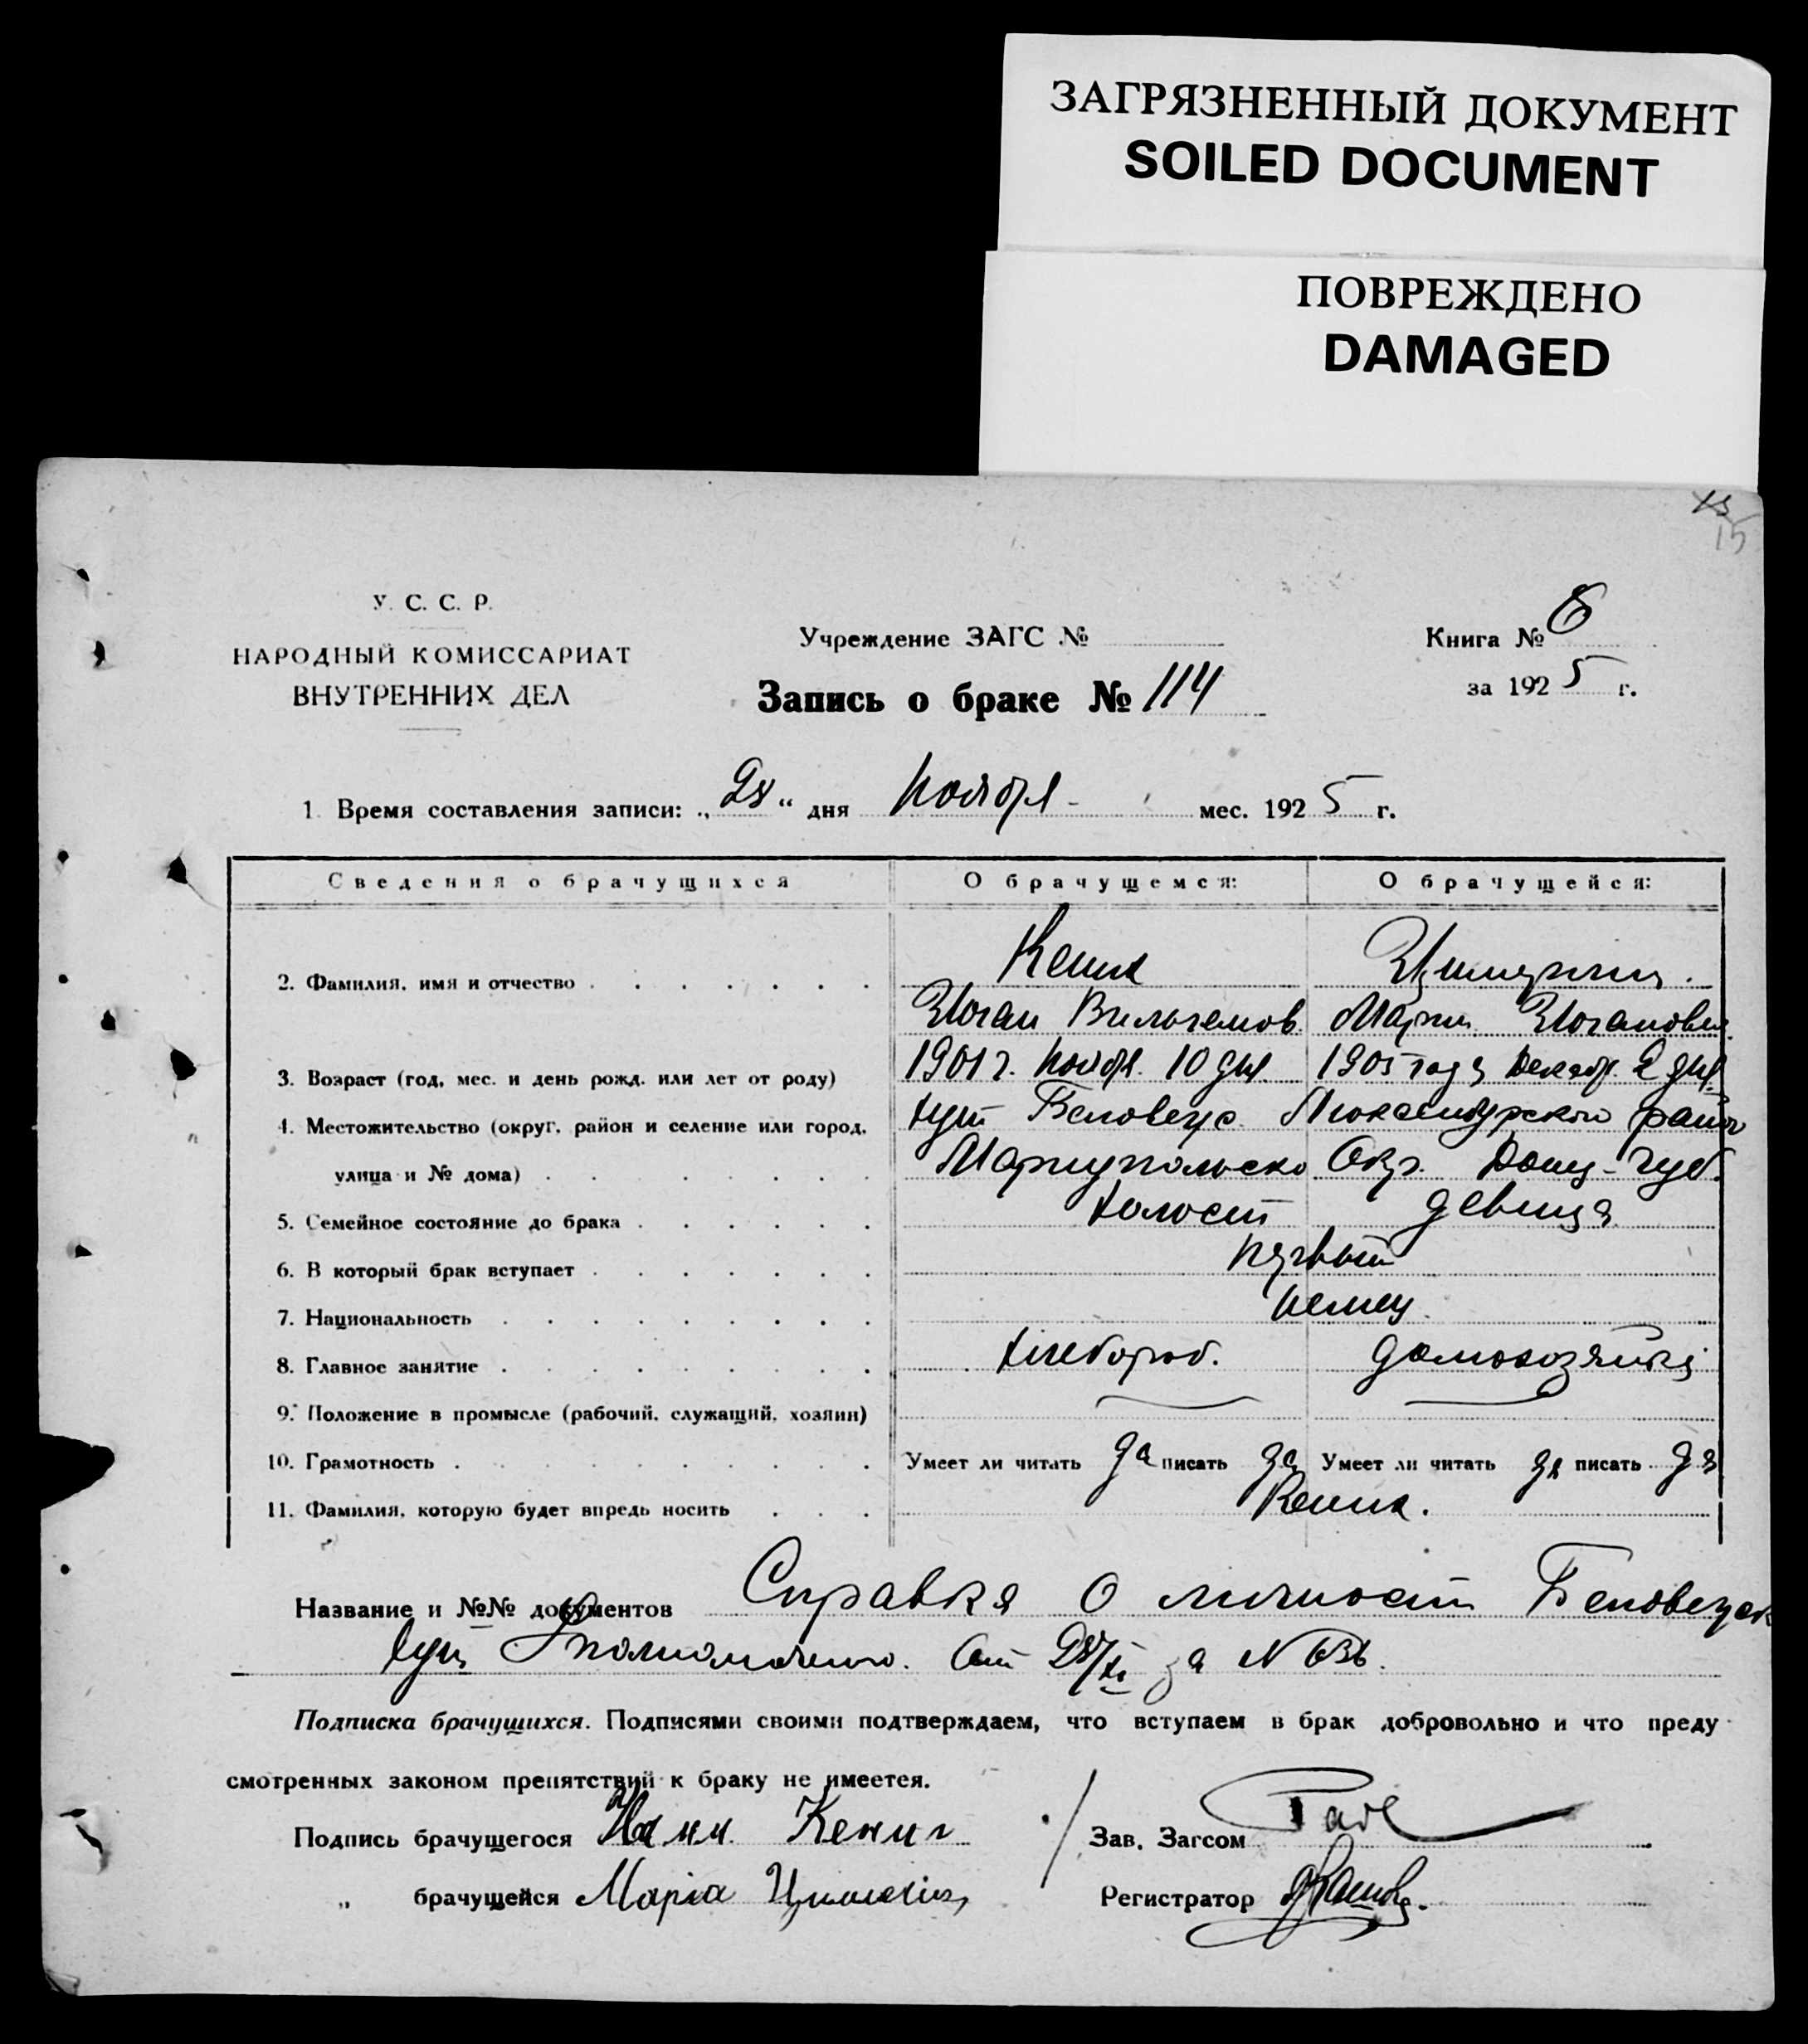 ЗАГРЯЗНЕННЫЙ ДОКУМЕНТ
SOILED DOCUMENT
ПОВРЕЖДЕНО
DAMAGED
15
У. С. С. Р.
НАРОДНЫЙ КОМИССАРИАТ
ВНУТРЕННИХ ДЕЛ
Учреждение ЗАГС №
Запись о браке № 114
Книга № 6
за 1925 г.
1. Время составления записи: „28“ дня Ноября мес. 1925 г.
Сведения о брачущихся О брачущемся: О брачущейся:
2. Фамилия, имя и отчество Кених
Иоган Вильгемов. Мария Иогановна
3. Возраст (год, мес. и день рожд. или лет от роду) 1901 г. Ноябр. 10 дня. 1905 года Декабр. 2 дня.
4. Местожительство (округ, район и селение или город, хут Беловеус Люксембурского район
улица и № дома) Мариупольско Окр. Донц-Губ.
5. Семейное состояние до брака Холост девица
6. В который брак вступает первый
7. Национальность немец.
8. Главное занятие хлебороб. домохозяйка
9. Положение в промысле (рабочий, служащий, хозяин)
10. Грамотность Умеет ли читать да писать да Умеет ли читать да писать да
11. Фамилия, которую будет впредь носить Кених.
Название и №№ документов Справка о личност
Уполномоченого. От 28/XI за N
Подписка брачущихся. Подписями своими подтверждаем, что вступаем в брак добровольно и что преду-
смотренных законом препятствий к браку не имеется.
Подпись брачущегося Кениг
Зав. Загсом
„ брачущейся Марiа
Регистратор